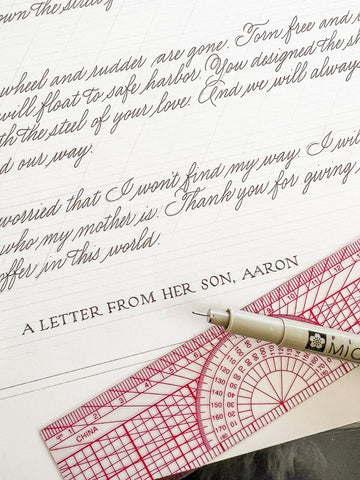 own the street
wheel and rudder are gone. Torn free and
will float to safe harbor. You designed the sh
th the steel of your love. And we will always
d our way.
worried that I won't find my way. I wi
who my mother is. Thank you for giving
offer in this world.
A LETTER FROM HER SON, AARON
CHINA